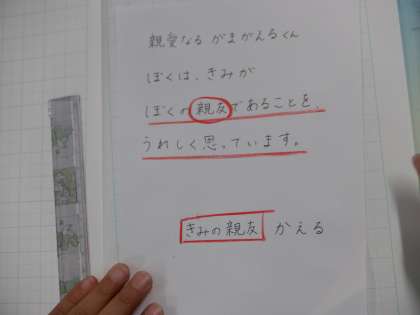 親愛なる がまがえるくん
ぼくは、きみが
ぼくの親友であることを、
うれしく思っています。
きみの親友 かえる